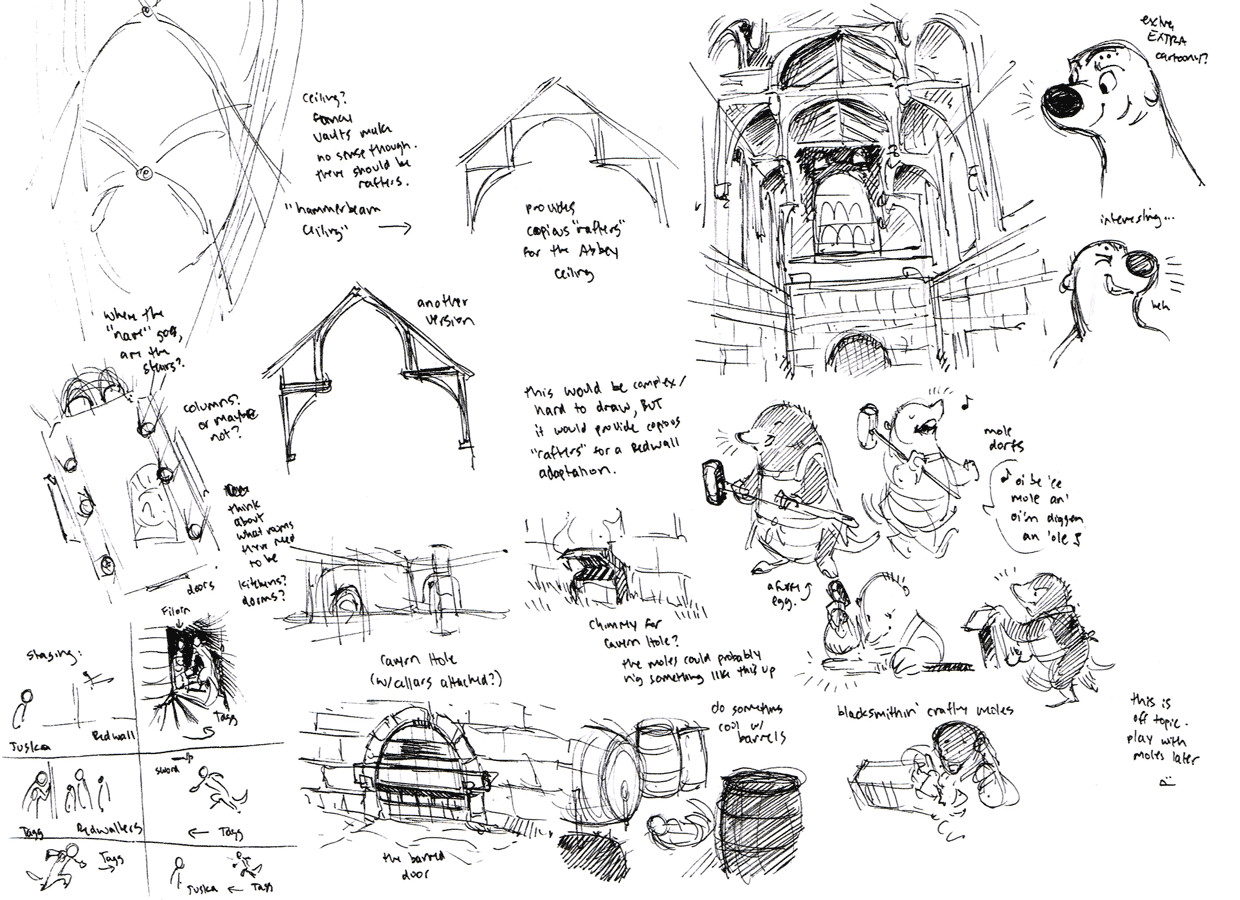 ceiling?
fancy
vaults make
no sense though.
there should be
rafters.
"hammerbeam
ceiling"
provides
copious "rafters"
for the Abbey
ceiling
extra
EXTRA
cartoony?
interesting...
heh
where the
"nave" goes,
are the
stairs?
another
version
columns?
or maybe
not?
this would be complex/
hard to draw, BUT
it would provide copious
"rafters" for a Redwall
adaptation.
mole
dorfs
♪ oi be 'ee
mole an'
oi'm diggen
an 'ole ♪
think
about
what rooms
there need
to be
kitchens?
dorms?
doors
egg.
chimney for
cavern hole?
the moles could probably
rig something like this up
Cavern Hole
(w/cellars attached?)
Filorn
staging:
Tagg
Juska
Redwall
sword
Tagg
Redwallers
Tagg
Tagg
Juska
Tagg
the barred
door
do something
cool w/
barrels
blacksmithin' crafty moles
this is
off topic.
play with
moles later